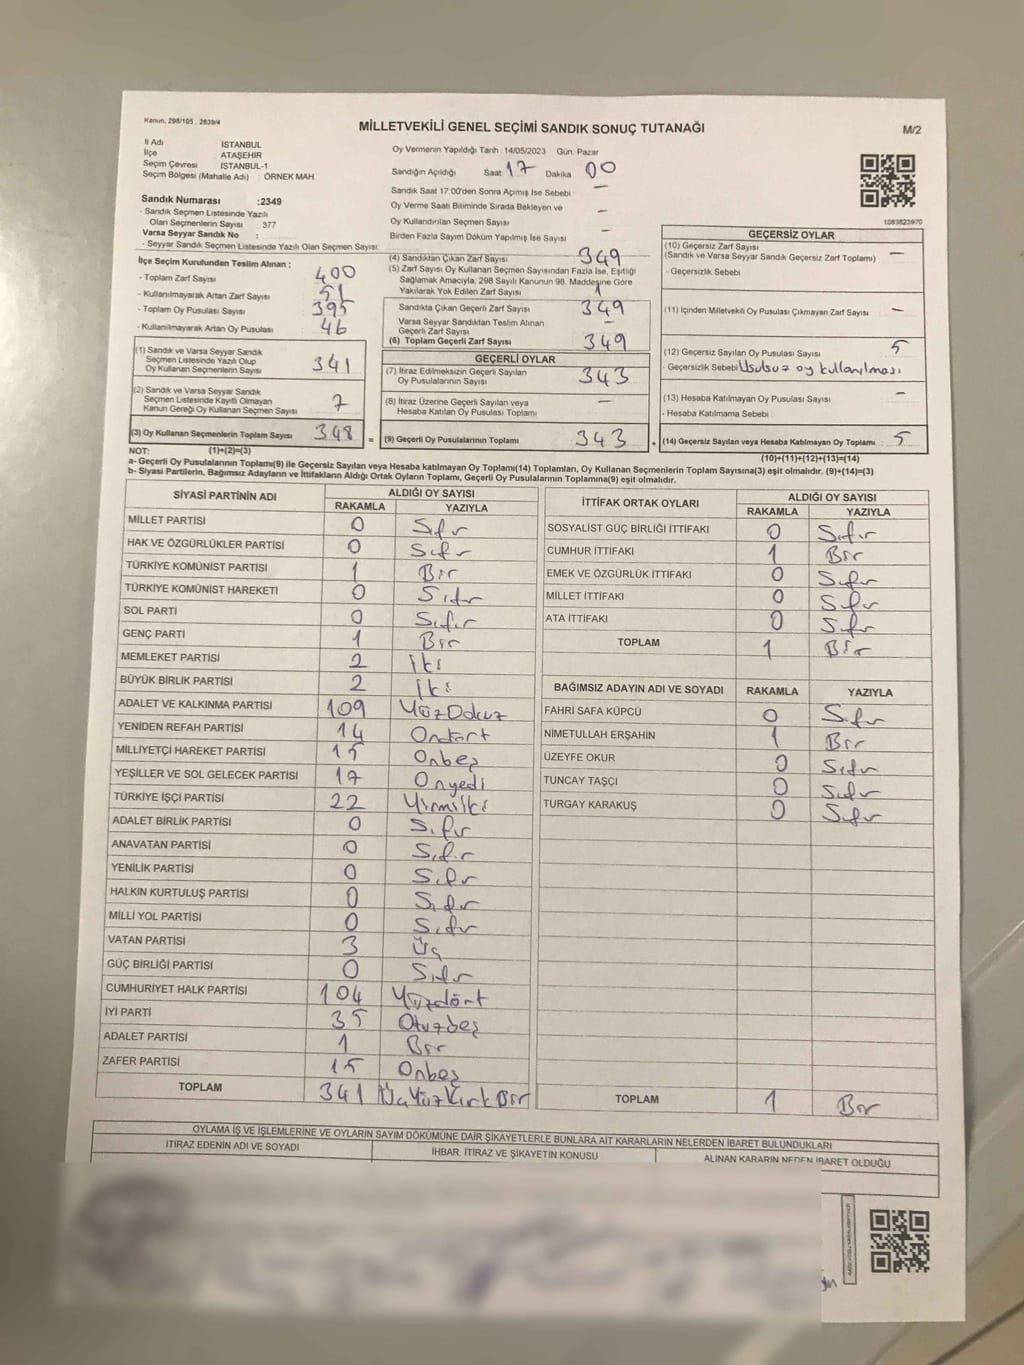 Kanun, 298/105 , 2839/4
MİLLETVEKİLİ GENEL SEÇİMİ SANDIK SONUÇ TUTANAĞI
M/2
İl Adı İSTANBUL
İlçe ATAŞEHİR
Seçim Çevresi İSTANBUL-1
Seçim Bölgesi (Mahalle Adı) : ÖRNEK MAH.
Oy Vermenin Yapıldığı Tarih : 14/05/2023 Gün: Pazar
Sandığın Açıldığı Saat 17 Dakika 00
Sandık Saat 17:00'den Sonra Açımış İse Sebebi –
Oy Verme Saati Bitiminde Sırada Bekleyen ve
Oy Kullandırılan Seçmen Sayısı –
Birden Fazla Sayım Döküm Yapılmış İse Sayısı –
1083823970
Sandık Numarası :2349
- Sandık Seçmen Listesinde Yazılı
Olan Seçmenlerin Sayısı : 377
Varsa Seyyar Sandık No :
- Seyyar Sandık Seçmen Listesinde Yazılı Olan Seçmen Sayısı:
İlçe Seçim Kurulundan Teslim Alınan :
- Toplam Zarf Sayısı 400
- Kullanılmayarak Artan Zarf Sayısı 51
- Toplam Oy Pusulası Sayısı 395
- Kullanılmayarak Artan Oy Pusulası 46
(1) Sandık ve Varsa Seyyar Sandık
Seçmen Listesinde Yazılı Olup
Oy Kullanan Seçmenlerin Sayısı 341
(2) Sandık ve Varsa Seyyar Sandık
Seçmen Listesinde Kayıtlı Olmayan
Kanun Gereği Oy Kullanan Seçmen Sayısı 7
(3) Oy Kullanan Seçmenlerin Toplam Sayısı 348 =
(4) Sandıktan Çıkan Zarf Sayısı 349
(5) Zarf Sayısı Oy Kullanan Seçmen Sayısından Fazla İse, Eşitliği
Sağlamak Amacıyla, 298 Sayılı Kanunun 98. Maddesine Göre
Yakılarak Yok Edilen Zarf Sayısı 1
Sandıkta Çıkan Geçerli Zarf Sayısı 349
Varsa Seyyar Sandıktan Teslim Alınan
Geçerli Zarf Sayısı –
(6) Toplam Geçerli Zarf Sayısı 349
GEÇERLİ OYLAR
(7) İtiraz Edilmeksizin Geçerli Sayılan
Oy Pusulalarının Sayısı 343
(8) İtiraz Üzerine Geçerli Sayılan veya
Hesaba Katılan Oy Pusulası Toplamı –
(9) Geçerli Oy Pusulalarının Toplamı 343 +
GEÇERSİZ OYLAR
(10) Geçersiz Zarf Sayısı
(Sandık ve Varsa Seyyar Sandık Geçersiz Zarf Toplamı) –
- Geçersizlik Sebebi
(11) İçinden Milletvekili Oy Pusulası Çıkmayan Zarf Sayısı –
(12) Geçersiz Sayılan Oy Pusulası Sayısı 5
- Geçersizlik Sebebi Usulsuz oy kullanılması
(13) Hesaba Katılmayan Oy Pusulası Sayısı –
- Hesaba Katılmama Sebebi
(14) Geçersiz Sayılan veya Hesaba Katılmayan Oy Toplamı : 5
NOT: (1)+(2)=(3) (10)+(11)+(12)+(13)=(14)
a- Geçerli Oy Pusulalarının Toplamı(9) ile Geçersiz Sayılan veya Hesaba katılmayan Oy Toplamı(14) Toplamları, Oy Kullanan Seçmenlerin Toplam Sayısına(3) eşit olmalıdır. (9)+(14)=(3)
b- Siyasi Partilerin, Bağımsız Adayların ve İttifakların Aldığı Ortak Oyların Toplamı, Geçerli Oy Pusulalarının Toplamına(9) eşit olmalıdır.
SİYASİ PARTİNİN ADI ALDIĞI OY SAYISI
RAKAMLA YAZIYLA
MİLLET PARTİSİ 0 Sıfır
HAK VE ÖZGÜRLÜKLER PARTİSİ 0 Sıfır
TÜRKİYE KOMÜNİST PARTİSİ 1 Bir
TÜRKİYE KOMÜNİST HAREKETİ 0 Sıfır
SOL PARTİ 0 Sıfır
GENÇ PARTİ 1 Bir
MEMLEKET PARTİSİ 2 İki
BÜYÜK BİRLİK PARTİSİ 2 İki
ADALET VE KALKINMA PARTİSİ 109 YüzDokuz
YENİDEN REFAH PARTİSİ 14 Ondört
MİLLİYETÇİ HAREKET PARTİSİ 15 Onbeş
YEŞİLLER VE SOL GELECEK PARTİSİ 17 Onyedi
TÜRKİYE İŞÇİ PARTİSİ 22 Yirmiiki
ADALET BİRLİK PARTİSİ 0 Sıfır
ANAVATAN PARTİSİ 0 Sıfır
YENİLİK PARTİSİ 0 Sıfır
HALKIN KURTULUŞ PARTİSİ 0 Sıfır
MİLLİ YOL PARTİSİ 0 Sıfır
VATAN PARTİSİ 3 Üç
GÜÇ BİRLİĞİ PARTİSİ 0 Sıfır
CUMHURİYET HALK PARTİSİ 104 Yüzdört
İYİ PARTİ 35 Otuzbeş
ADALET PARTİSİ 1 Bir
ZAFER PARTİSİ 15 Onbeş
TOPLAM 341 ÜçYüzKırkBir
İTTİFAK ORTAK OYLARI ALDIĞI OY SAYISI
RAKAMLA YAZIYLA
SOSYALİST GÜÇ BİRLİĞİ İTTİFAKI 0 Sıfır
CUMHUR İTTİFAKI 1 Bir
EMEK VE ÖZGÜRLÜK İTTİFAKI 0 Sıfır
MİLLET İTTİFAKI 0 Sıfır
ATA İTTİFAKI 0 Sıfır
TOPLAM 1 Bir
BAĞIMSIZ ADAYIN ADI VE SOYADI RAKAMLA YAZIYLA
FAHRİ SAFA KÜPCÜ 0 Sıfır
NİMETULLAH ERŞAHİN 1 Bir
ÜZEYFE OKUR 0 Sıfır
TUNCAY TAŞÇI 0 Sıfır
TURGAY KARAKUŞ 0 Sıfır
TOPLAM 1 Bir
OYLAMA İŞ VE İŞLEMLERİNE VE OYLARIN SAYIM DÖKÜMÜNE DAİR ŞİKAYETLERLE BUNLARA AİT KARARLARIN NELERDEN İBARET BULUNDUKLARI
İTİRAZ EDENİN ADI VE SOYADI İHBAR, İTİRAZ VE ŞİKAYETİN KONUSU ALINAN KARARIN NEDEN İBARET OLDUĞU